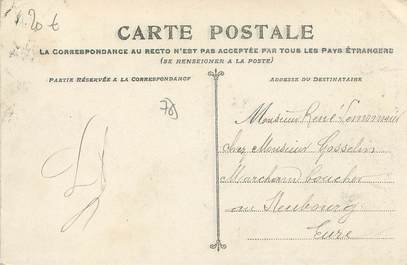 1.20 €
CARTE POSTALE
LA CORRESPONDANCE AU RECTO N'EST PAS ACCEPTÉE PAR TOUS LES PAYS ÉTRANGERS
(SE RENSEIGNER A LA POSTE)
PARTIE RÉSERVÉE A LA CORRESPONDANCE
ADRESSE DU DESTINATAIRE
Monsieur René Lemonnier
chez Monsieur Gosselin
Marchand boucher
au Neubourg
Eure